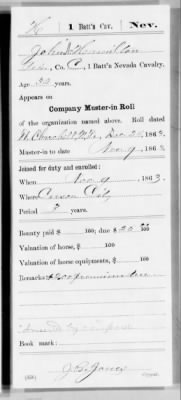 H | 1 Batt's Cav. | Nev.
John Hamilton
, Co. C, 1 Batt's Nevada Cavalry.
Age 32 years.
Appears on
Company Muster-in Roll
of the organization named above. Roll dated
Ft. Churchill N.T., Dec 26, 1863.
Muster-in to date Nov 9, 1863.
Joined for duty and enrolled:
When Nov 9, 1863.
Where Carson City
Period 3 years.
Bounty paid $ 100; due $ 100
Valuation of horse, $ 100
Valuation of horse equipments, $ 100
Remarks: $2.00 premium due
Book mark:
J. B. Jones
Copyist.